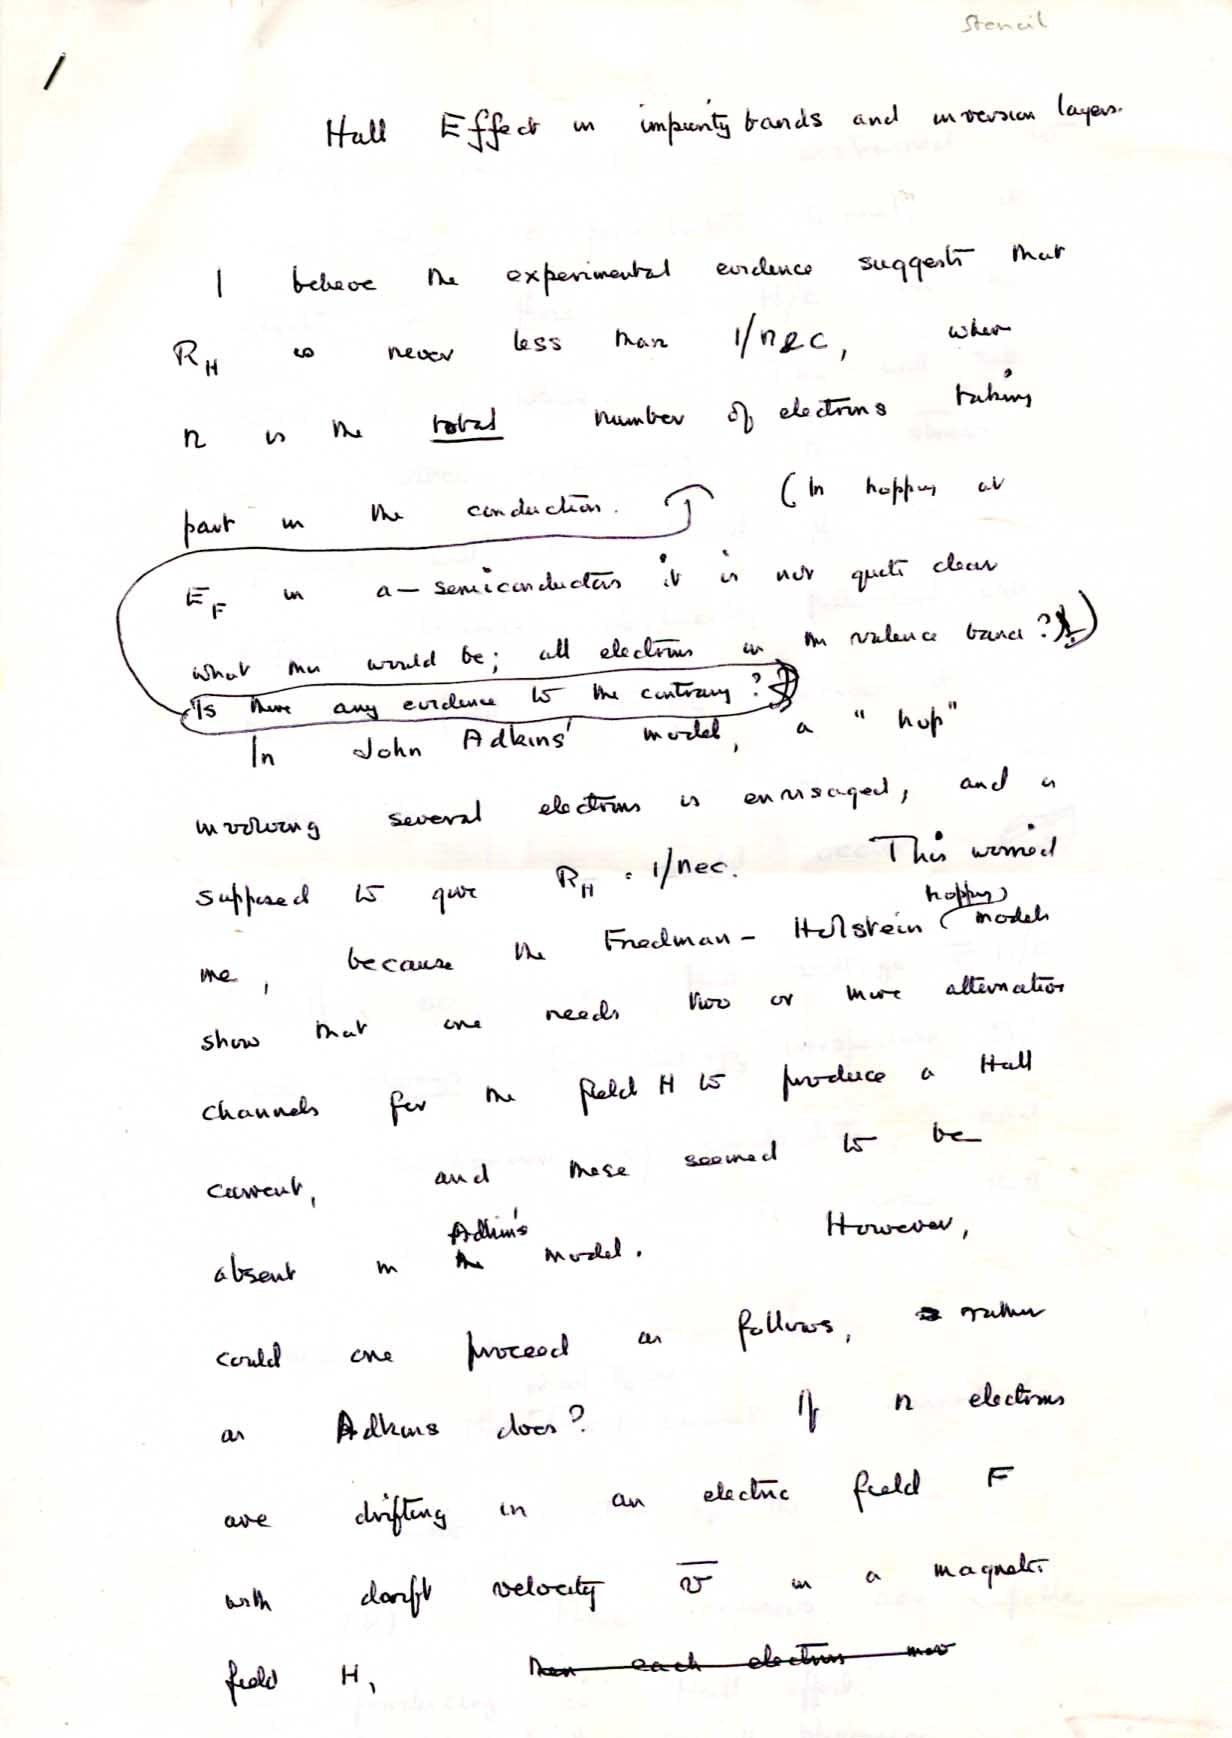 Stencil
1
Hall Effect in impurity bands and inversion layers.
I believe the experimental evidence suggests that
R_H is never less than 1/nec, where
n is the total number of electrons taking
part in the conduction. (In hopping at
E_F in a-semiconductors it is not quite clear
what this would be; all electrons in the valence band?)
Is there any evidence to the contrary?
In John Adkins' model, a "hop"
involving several electrons is envisaged, and is
supposed to give R_H = 1/nec. This worried
hopping
me, because the Friedman-Holstein models
show that one needs two or more alternative
channels for the field H to produce a Hall
current, and these seemed to be
Adkin's
absent in the model. However,
could one proceed as follows, rather
as Adkins does? If n electrons
are drifting in an electric field F
with drift velocity v̅ in a magnetic
field H, then each electron mov